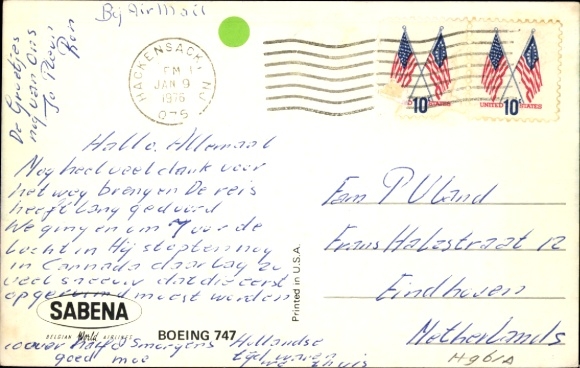 By Air Mail
De Groetjes
nog van ons
Jo Roewi
Ron
HACKENSACK, NJ
PM
JAN 9
1976
076
10c UNITED STATES
10c UNITED STATES
Hallo. Allemaal
Nog heel veel dank voor
het weg brengen De reis
heeft lang geduurd
We gingen om 7 voor de
lucht in Hij stopten nog
in Cannada daar lag zo
veel sneeuw dat die eerst
opgeruimd moest worden
SABENA
BELGIAN World AIRLINES
BOEING 747
Printed in U.S.A.
over half 3 smorgens Hollandse
tijd waren
we thuis
goed moe
Fam P Uland
Frans Halsstraat 12
Eindhoven
Netherlands
H961A